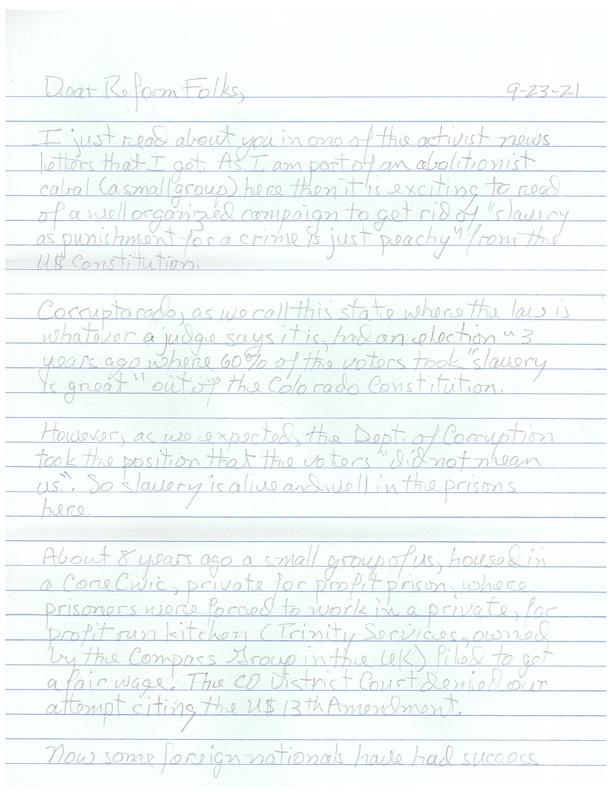 Dear Reform Folks, 9-23-21
I just read about you in one of the activist news
letters that I get. As I am part of an abolitionist
cabal (a small group) here then it is exciting to read
of a well organized campaign to get rid of "slavery
as punishment for a crime is just peachy" from the
U$ Constitution.
Corruptorado, as we call this state where the law is
whatever a judge says it is, had an election ~3
years ago where 60% of the voters took "slavery
is great" out of the Colorado Constitution.
However, as we expected, the Dept. of Corruption
took the position that the voters "did not mean
us". So slavery is alive and well in the prisons
here.
About 8 years ago a small group of us, housed in
a CoreCivic, private for profit prison, where
prisoners were forced to work in a private, for
profit run kitchen (Trinity Services, owned
by the Compass Group in the UK) filed to get
a fair wage. The CO District Court denied our
attempt citing the U$ 13th Amendment.
Now some foreign nationals have had success